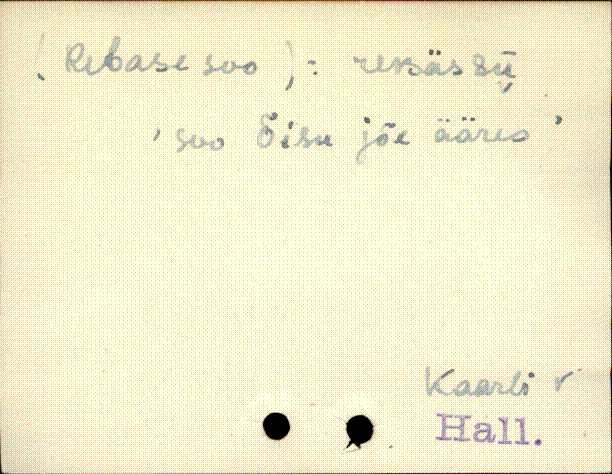 ( Rebase soo ) : rebässü̬
' soo Õisu jõe ääres '
Kaarli v
Hall.